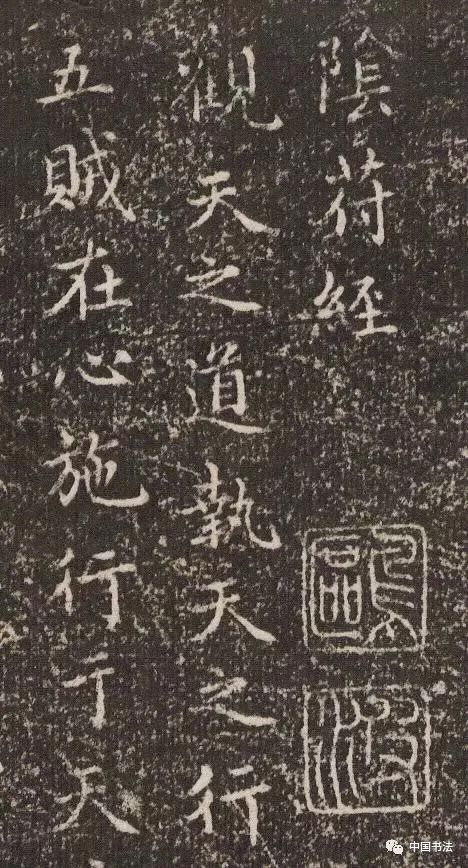 陰苻経
觀天之道執天之行
五賊在心施行于天
中国书法